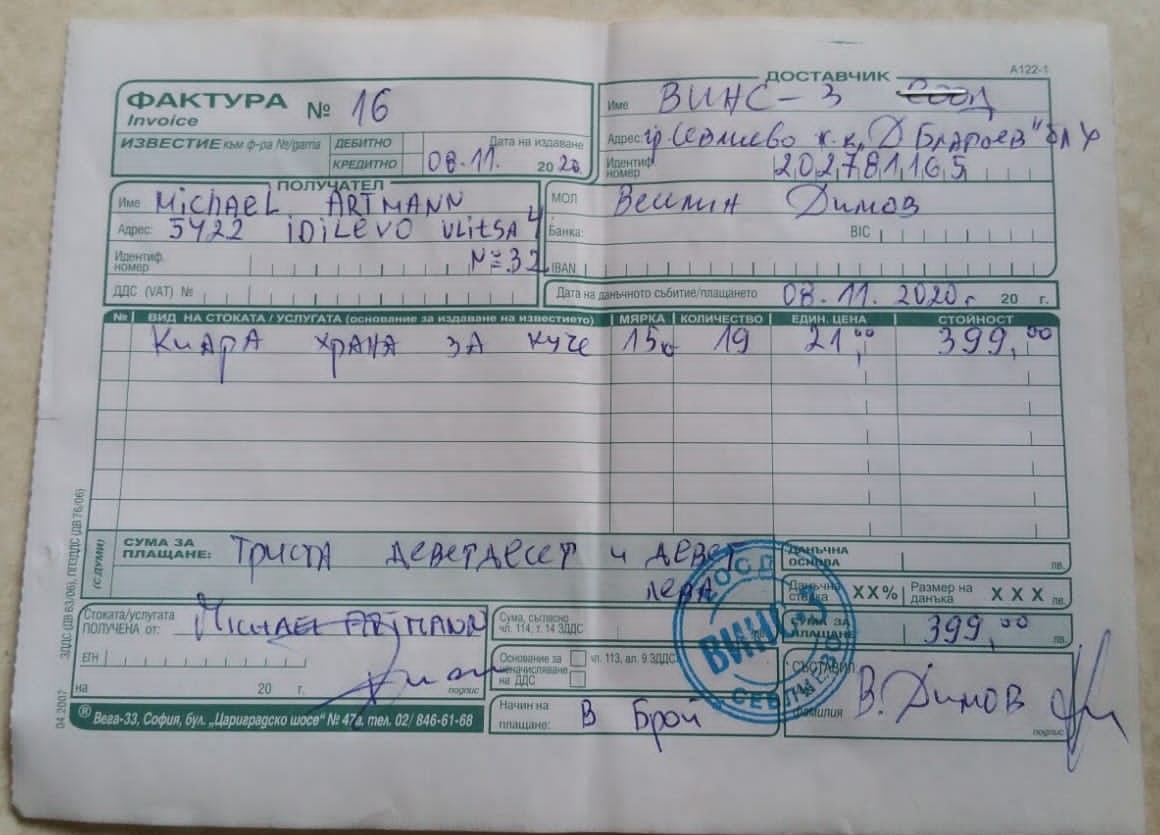 А122-1
ФАКТУРА № 16
Invoice
ИЗВЕСТИЕ към ф-ра №/дата ДЕБИТНО Дата на издаване
КРЕДИТНО 08.11. 2020
ДОСТАВЧИК
Име ВИНС-3 ЕООД
Адрес: гр. Севлиево ж.к. Д. Благоев" бл 4
Идентиф. номер 202781165
МОЛ Веслин Димов
Банка: BIC
IBAN
Дата на данъчното събитие/плащането 08.11.2020г 20 г.
ПОЛУЧАТЕЛ
Име MICHAEL ARTMANN
Адрес: 5422 IDILEVO ULITSA 4
Идентиф. номер №32
ДДС (VAT) №
№ ВИД НА СТОКАТА / УСЛУГАТА (основание за издаване на известието) МЯРКА КОЛИЧЕСТВО ЕДИН. ЦЕНА СТОЙНОСТ
КИАРА ХРАНА ЗА КУЧЕ 15кг 19 21,00 399,00
СУМА ЗА ПЛАЩАНЕ: ТРИСТА ДЕВЕТДЕСЕТ И ДЕВЕТ
(С ДУМИ) ЛЕВА
ДАНЪЧНА ОСНОВА лв.
Данъчна ставка ХХ% Размер на данъка Х Х Х лв.
Стоката/услугата
ПОЛУЧЕНА от: MICHAEL ARTMANN
Сума, съгласно
чл. 114, т. 14 ЗДДС
СУМА ЗА ПЛАЩАНЕ 399,00 лв.
ЕГН
на 20 г. подпис
Основание за неначисляване на ДДС чл. 113, ал. 9 ЗДДС
СЪСТАВИЛ:
фамилия В. Димов подпис
Начин на плащане: В Брой
® Вега-33, София, бул. „Цариградско шосе" № 47а, тел. 02/ 846-61-68
04.2007 ЗДДС (ДВ 63/06), ППЗДДС (ДВ 76/06)
ЕООД
ВИНС-3
СЕВЛИЕВО